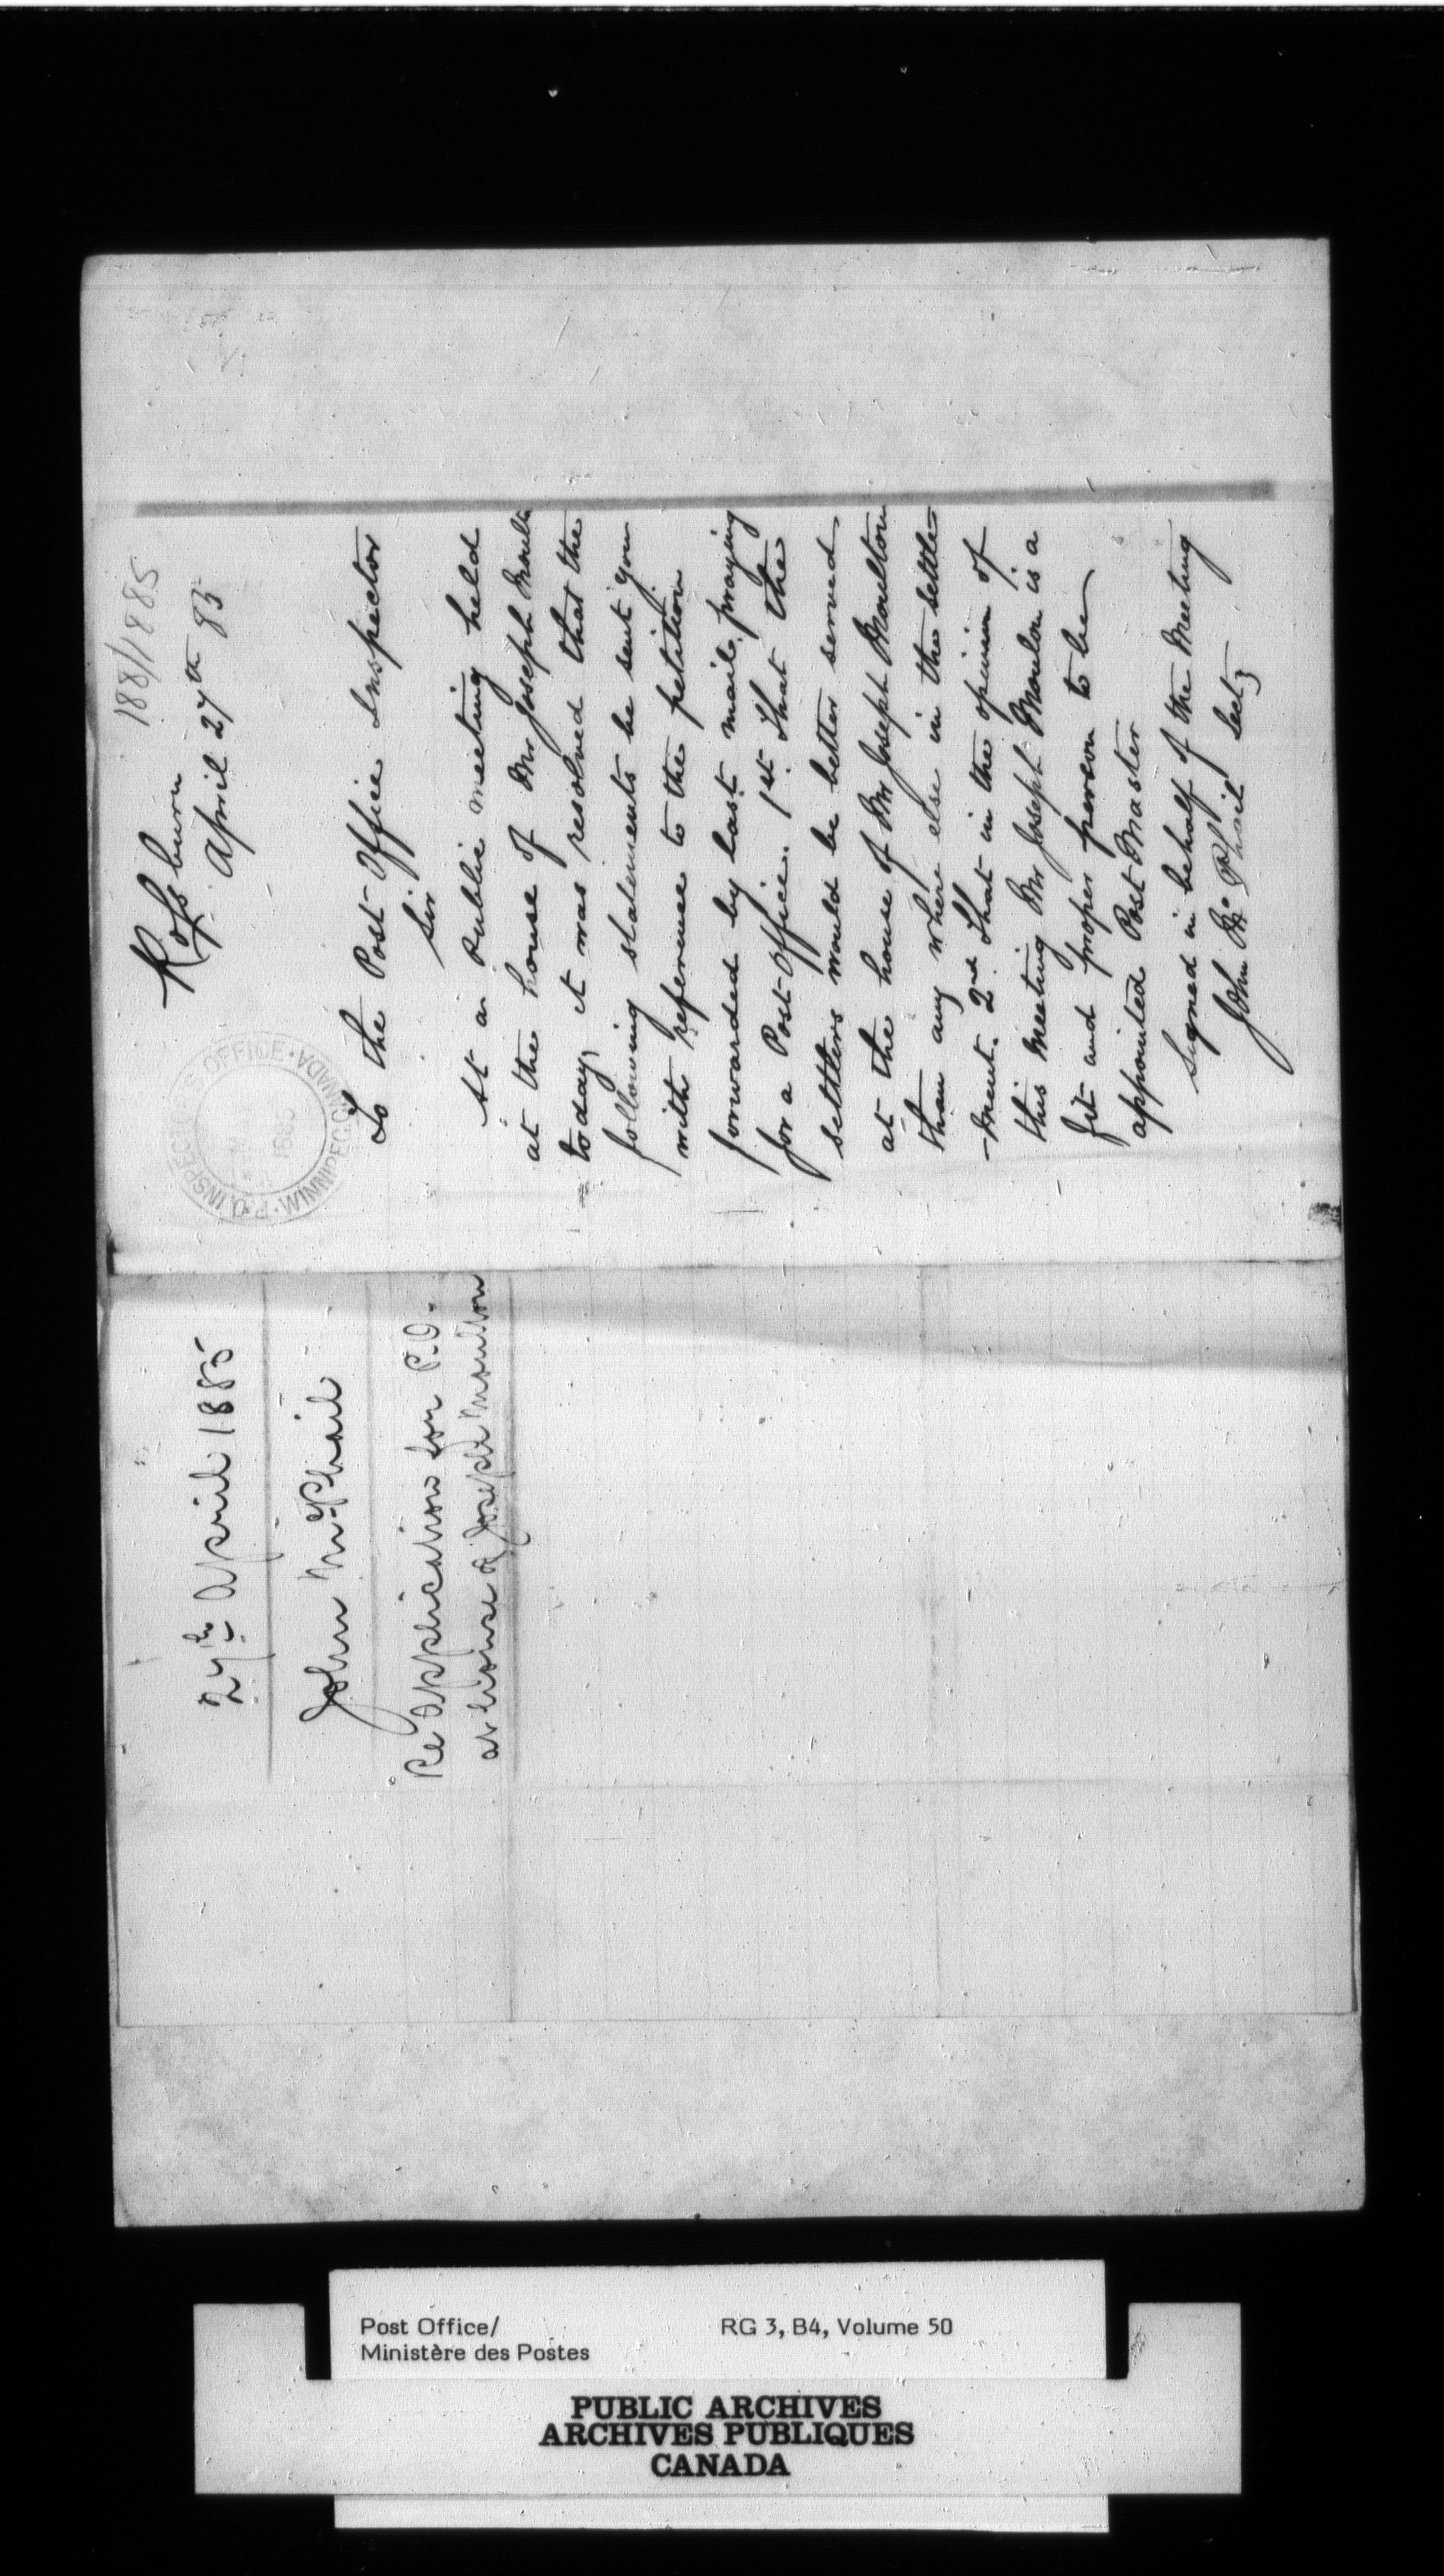 188/1885
Rossburn
April 27th 85
P.O. INSPECTOR'S OFFICE · WINNIPEG, CANADA ·
1885
To the Post Office Inspector
Sir
At a Public meeting held
at the house of Mr Joseph Moulton
today it was resolved that the
following statements be sent you
with reference to the petition
forwarded by last mail, praying
for a Post Office. 1st That the
settlers would be better served
at the house of Mr Joseph Moulton
than any where else in the settle
-ment. 2nd That in the opinion of
this Meeting Mr Joseph Moulon is a
fit and proper person to be
appointed Post Master
Signed in behalf of the Meeting
John Mc Phail Secty
27th April 1885
John McPhail
Re Application for P.O.
at house of Joseph Moulton
Post Office/ RG 3, B4, Volume 50
Ministère des Postes
PUBLIC ARCHIVES
ARCHIVES PUBLIQUES
CANADA